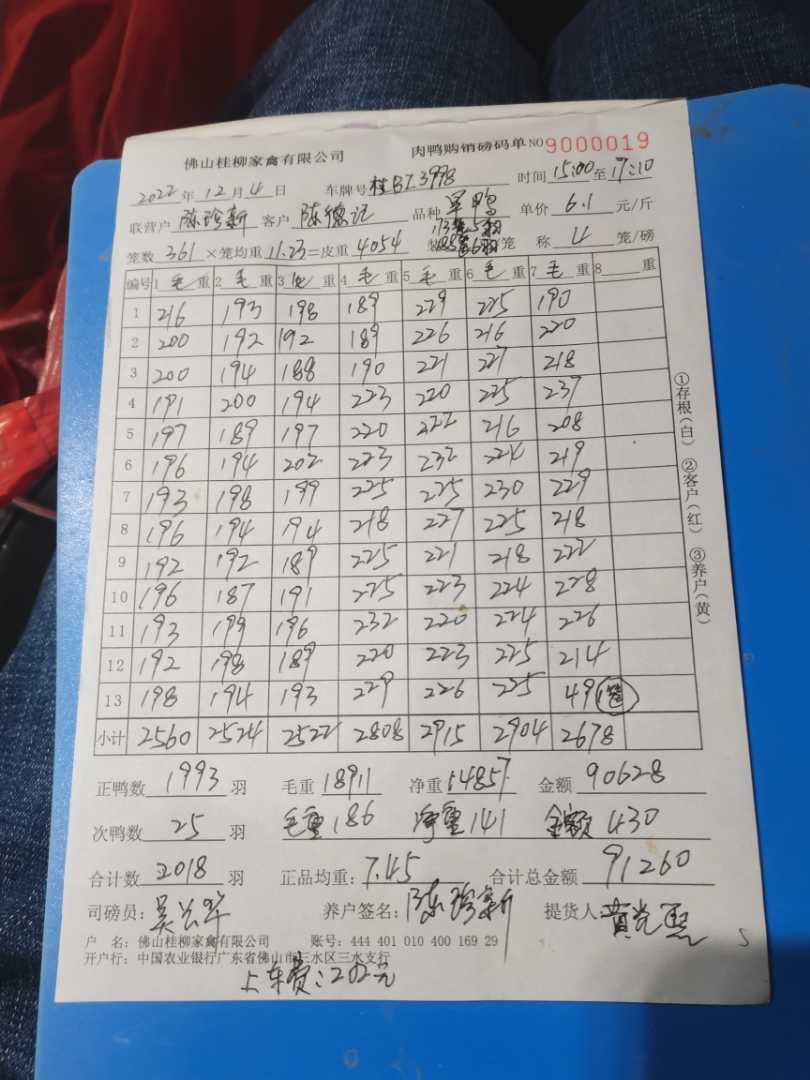 佛山桂柳家禽有限公司 肉鸭购销磅码单 NO 9000019
2022年12月4日 车牌号 桂BT.3998 时间 15:00至17:10
联营户 陈珍新 客户 陈德记 品种 单价 6.1 元/斤
笼数 361 ×笼均重 11.23 =皮重 4054 笼 称 4 笼/磅
编号 1 毛 重 2 毛 重 3 毛 重 4 毛 重 5 毛 重 6 毛 重 7 毛 重 8 重
1 216 193 198 189 229 225 190
2 200 192 192 189 226 216 220
3 200 194 188 190 221 227 218
4 191 200 194 223 220 225 237
5 197 189 197 220 222 216 208
6 196 194 202 223 232 224 219
7 193 198 199 225 225 230 229
8 196 194 194 218 227 225 218
9 192 192 189 225 221 218 222
10 196 187 191 225 223 224 228
11 193 199 196 232 220 224 226
12 192 198 189 220 223 225 214
13 198 194 193 229 226 225 49
小计 2560 2524 2522 2808 2915 2904 2678
正鸭数 1993 羽 毛重 18911 净重 14857 金额 90628
次鸭数 25 羽 毛重 186 净重 141 金额 430
合计数 2018 羽 正品均重: 7.45 合计总金额 91260
司磅员: 养户签名: 陈珍新 提货人:
户 名: 佛山桂柳家禽有限公司 账号: 444 401 010 400 169 29
开户行: 中国农业银行广东省佛山市三水区三水支行
上车费:202元
①存根(白) ②客户(红) ③养户(黄)